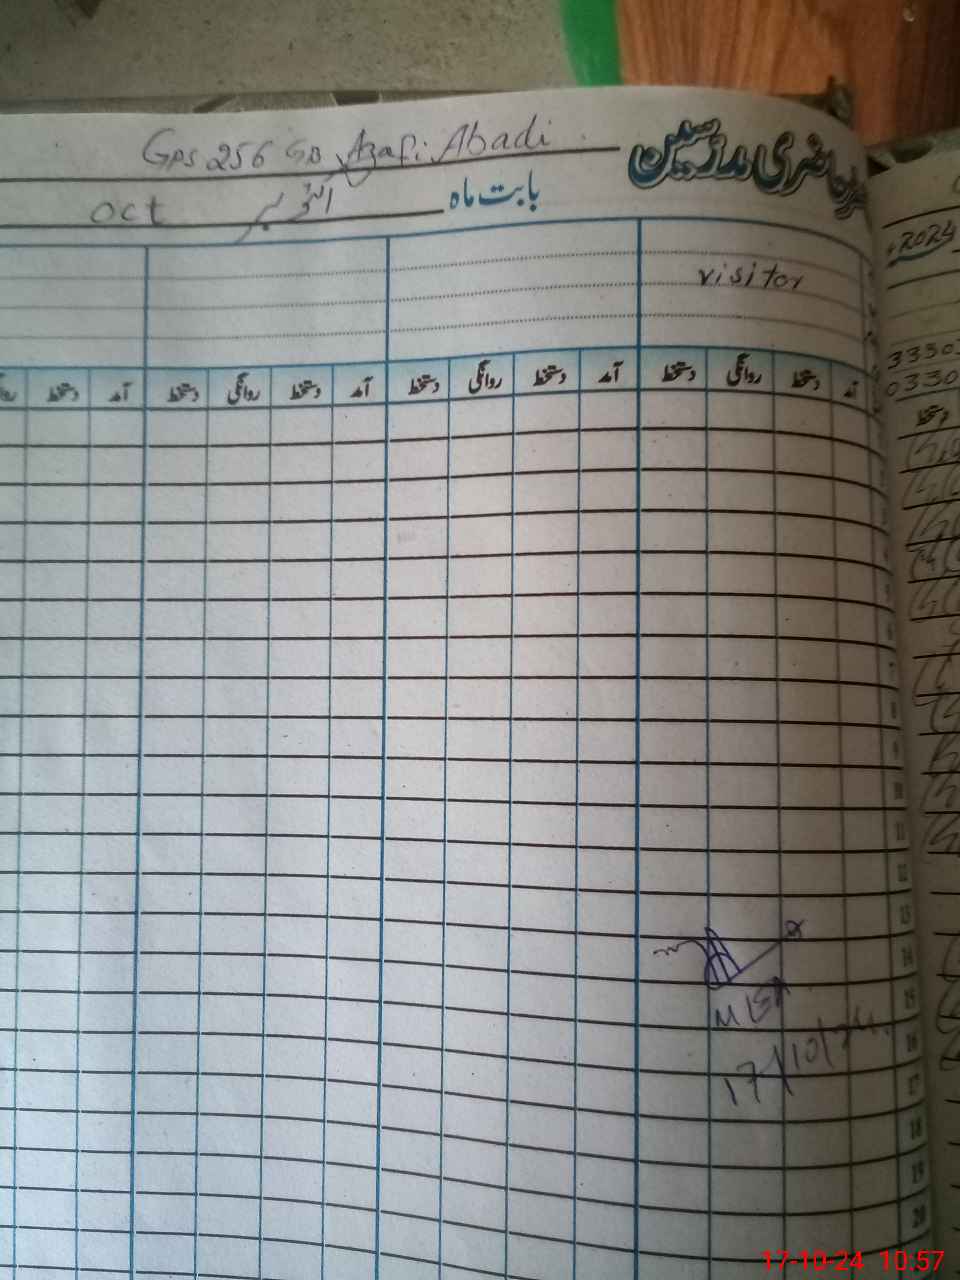 حاضری مدرسین GPS 256 GB Azafi Abadi
بابت ماہ اکتوبر Oct
visitor
2024
آمد دستخط روانگی دستخط آمد دستخط روانگی دستخط آمد دستخط روانگی دستخط آمد دستخط
دستخط
6
7
8
9
10
11
12
13
14
15
16
17
18
19
20
17/10/24
17-10-24 10:57